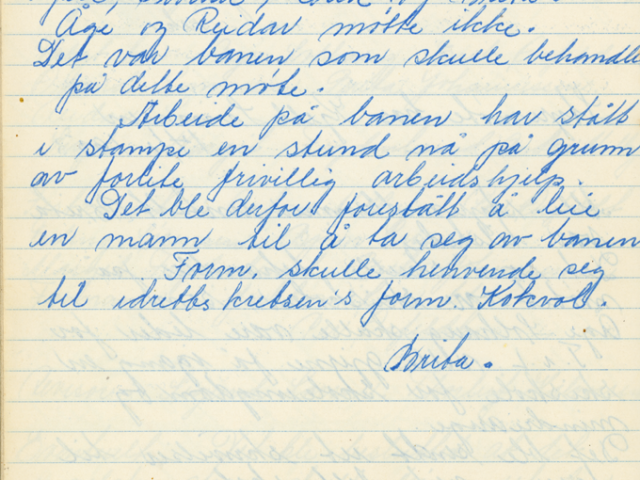 Åge og Reidar møtte ikke.
Det var banen som skulle behandle
på dette møte.
Arbeide på banen har stått
i stampe en stund nå på grunn
av forlite frivillig arbeidshjelp.
Det ble derfor forestått å leie
en mann til å ta seg av banen
Form. skulle henvende seg
til idrettskretsen's form. Kokvol.
Brita.